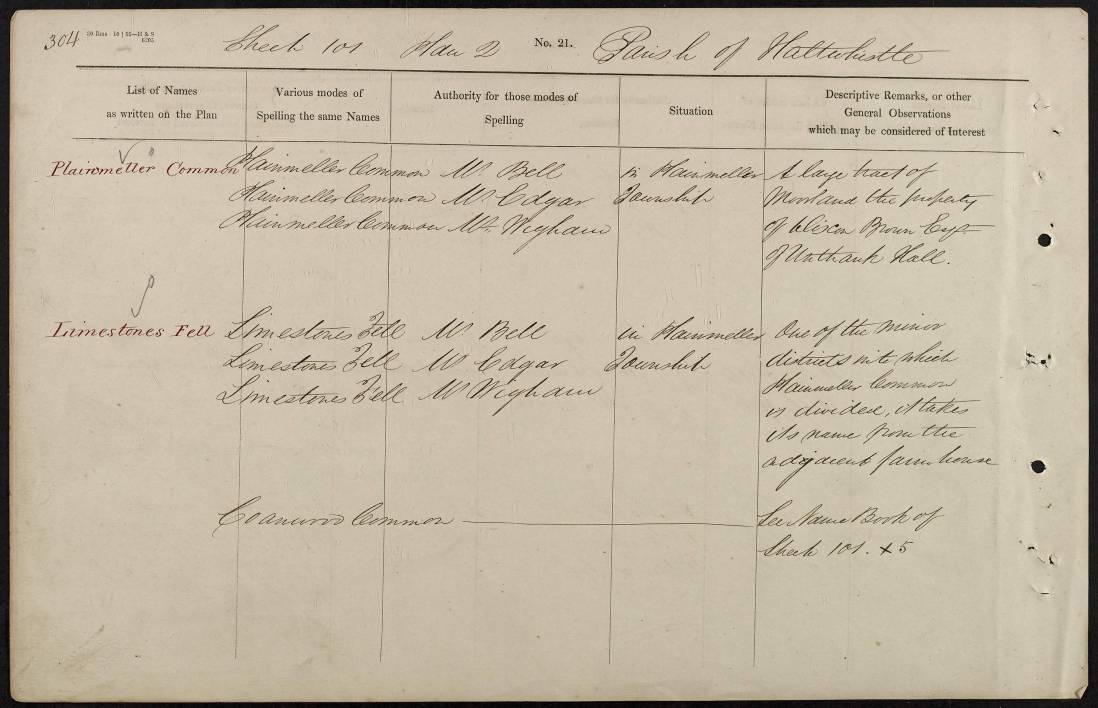 304 Sheet 101 Plan 2 No. 21. Parish of Haltwhistle
List of Names as written on the Plan
Various modes of Spelling the same Names
Authority for those modes of Spelling
Situation
Descriptive Remarks, or other General Observations which may be considered of Interest
Plainmeller Common Plainmeller Common Mr. Bell in Plainmeller A large tract of
Plainmeller Common Mr Edgar Township Moorland the property
Plainmeller Common Mr. Wigham of Dixon Brown Esqr
of Unthank Hall.
Limestones Fell Limestones Fell Mr. Bell in Plainmeller One of the minor
Limestones Fell Mr Edgar Township districts into which
Limestones Fell Mr Wigham Plainmeller Common
is divided, it takes
its name from the
adjacent farm house
Coanwood Common See Name Book of
Sheet 101. + 5